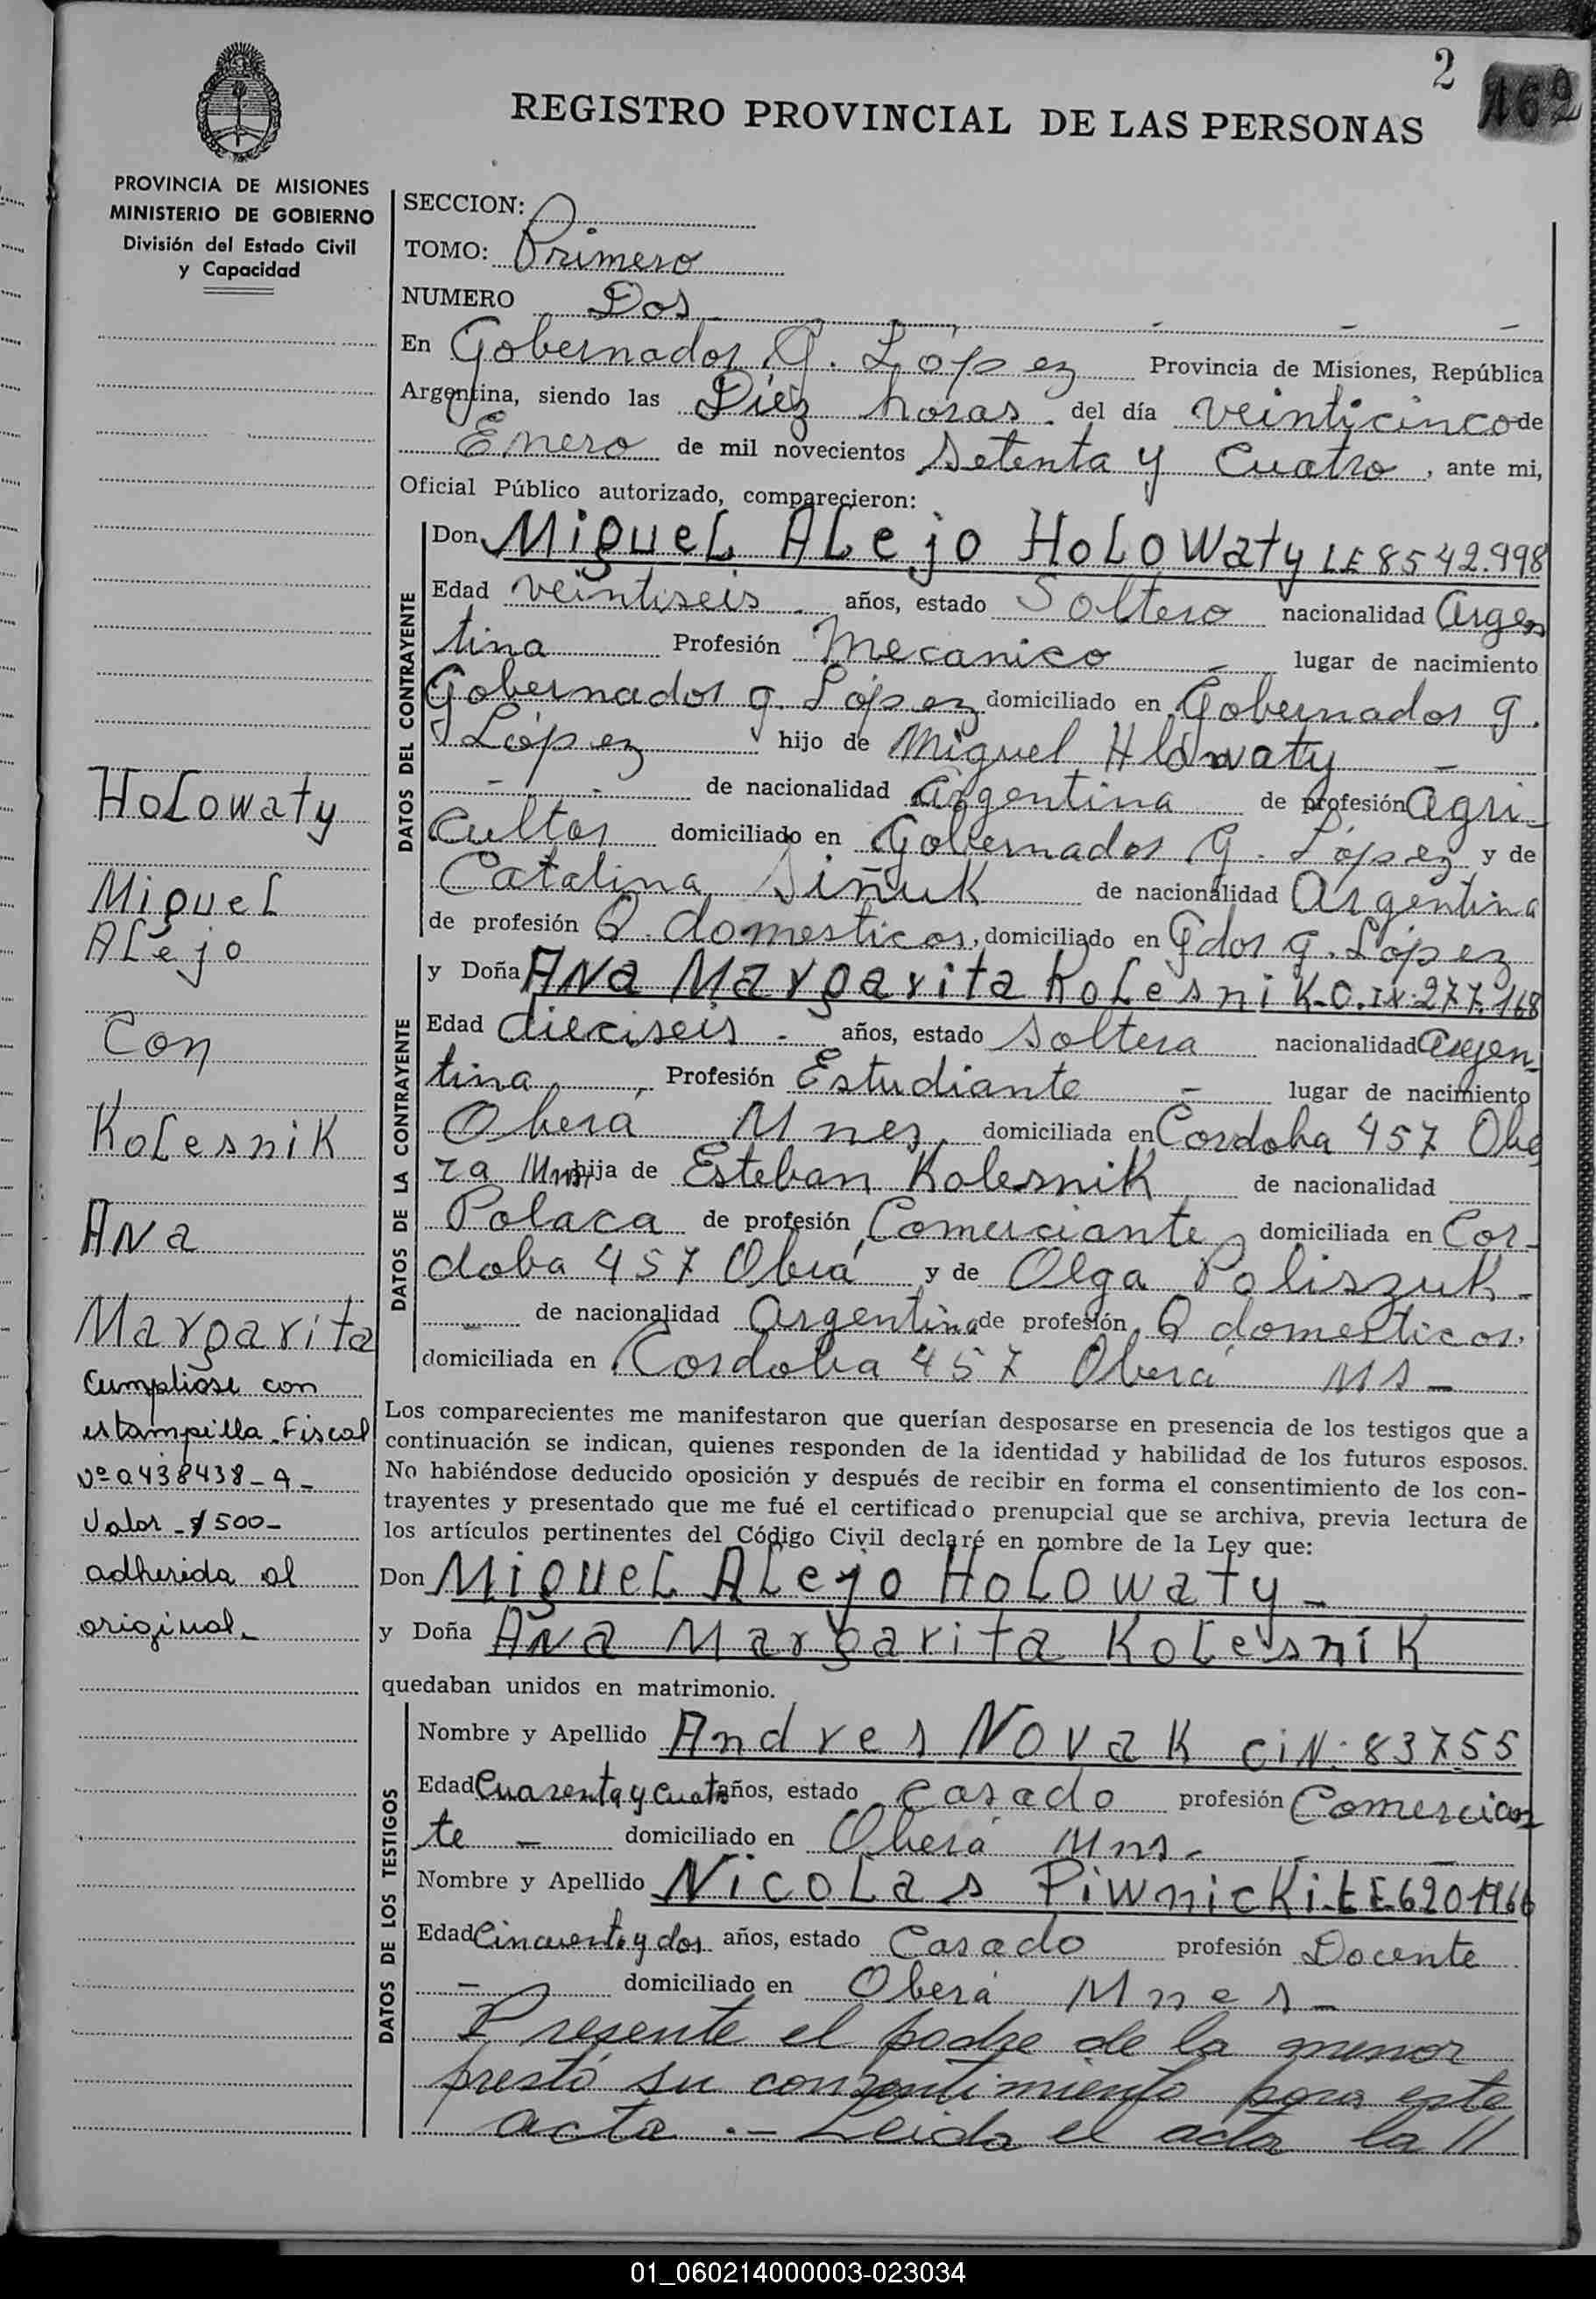 2
162
REGISTRO PROVINCIAL DE LAS PERSONAS
PROVINCIA DE MISIONES
MINISTERIO DE GOBIERNO
División del Estado Civil
y Capacidad
SECCION:
TOMO: Primero
NUMERO Dos
En Gobernador G. López Provincia de Misiones, República
Argentina, siendo las Diez horas - del día veinticinco de
Enero de mil novecientos setenta y Cuatro, ante mi,
Oficial Público autorizado, comparecieron:
DATOS DEL CONTRAYENTE
Don Miguel Alejo Holowaty LE 8542.998
Edad veintiseis - años, estado Soltero nacionalidad Argen
tina Profesión Mecanico - lugar de nacimiento
Gobernador G. López domiciliado en Gobernador G.
López hijo de Miguel Hlowaty -
- - de nacionalidad Argentina de profesión Agri-
cultor domiciliado en Gobernador G. López y de
Catalina Siñuk de nacionalidad Argentina
de profesión Q. domesticos, domiciliado en Gdor G. López
DATOS DE LA CONTRAYENTE
y Doña Ana Margarita Kolesnik-C.IN:277.168
Edad dieciseis - años, estado soltera nacionalidad Argen-
tina Profesión Estudiante - lugar de nacimiento
Oberá Mnes, domiciliada en Cordoba 457 Obe
ra Mns hija de Esteban Kolesnik de nacionalidad
Polaca de profesión Comerciante domiciliada en Cor-
doba 457 Oberá y de Olga Poliszuk -
- de nacionalidad Argentina de profesión Q domesticos.
domiciliada en Cordoba 457 Oberá MS -
Los comparecientes me manifestaron que querían desposarse en presencia de los testigos que a
continuación se indican, quienes responden de la identidad y habilidad de los futuros esposos.
No habiéndose deducido oposición y después de recibir en forma el consentimiento de los con-
trayentes y presentado que me fué el certificado prenupcial que se archiva, previa lectura de
los artículos pertinentes del Código Civil declaré en nombre de la Ley que:
Don Miguel Alejo Holowaty -
y Doña Ana Margarita Kolesnik
quedaban unidos en matrimonio.
DATOS DE LOS TESTIGOS
Nombre y Apellido Andres Novak CiN: 83755
Edad Cuarenta y cuatro años, estado casado profesión Comercian
te - domiciliado en Oberá Mns -
Nombre y Apellido Nicolas Piwnicki-LE6201966
Edad Cincuenta y dos años, estado Casado profesión Docente
- domiciliado en Oberá Mnes -
Presente el padre de la menor
prestó su consentimiento para este
acta .- Leida el acta la //
Holowaty
Miguel
Alejo
Con
Kolesnik
Ana
Margarita
Cumpliose con
estampilla Fiscal
Nº 0438438 - A -
Valor - $ 500 -
adherida al
original -
01_060214000003-023034